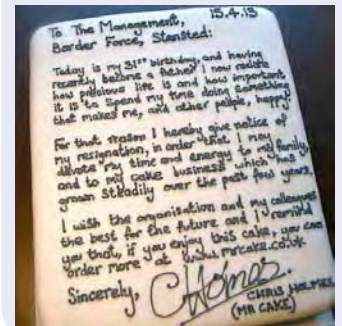 15.4.13
To The Management,
Border Force, Stansted:
Today is my 31st birthday, and having
recently become a father I now realise
how precious life is and how important
it is to spend my time doing something
that makes me, and other people, happy.
For that reason I hereby give notice of
my resignation, in order that I may
devote my time and energy to my family,
and to my cake business which has
grown steadily over the past few years.
I wish the organisation and my colleagues
the best for the future and I remind
you that, if you enjoy this cake, you can
order more at www.mrcake.co.uk.
Sincerely,
CHolmes.
CHRIS HOLMES
(MR CAKE)